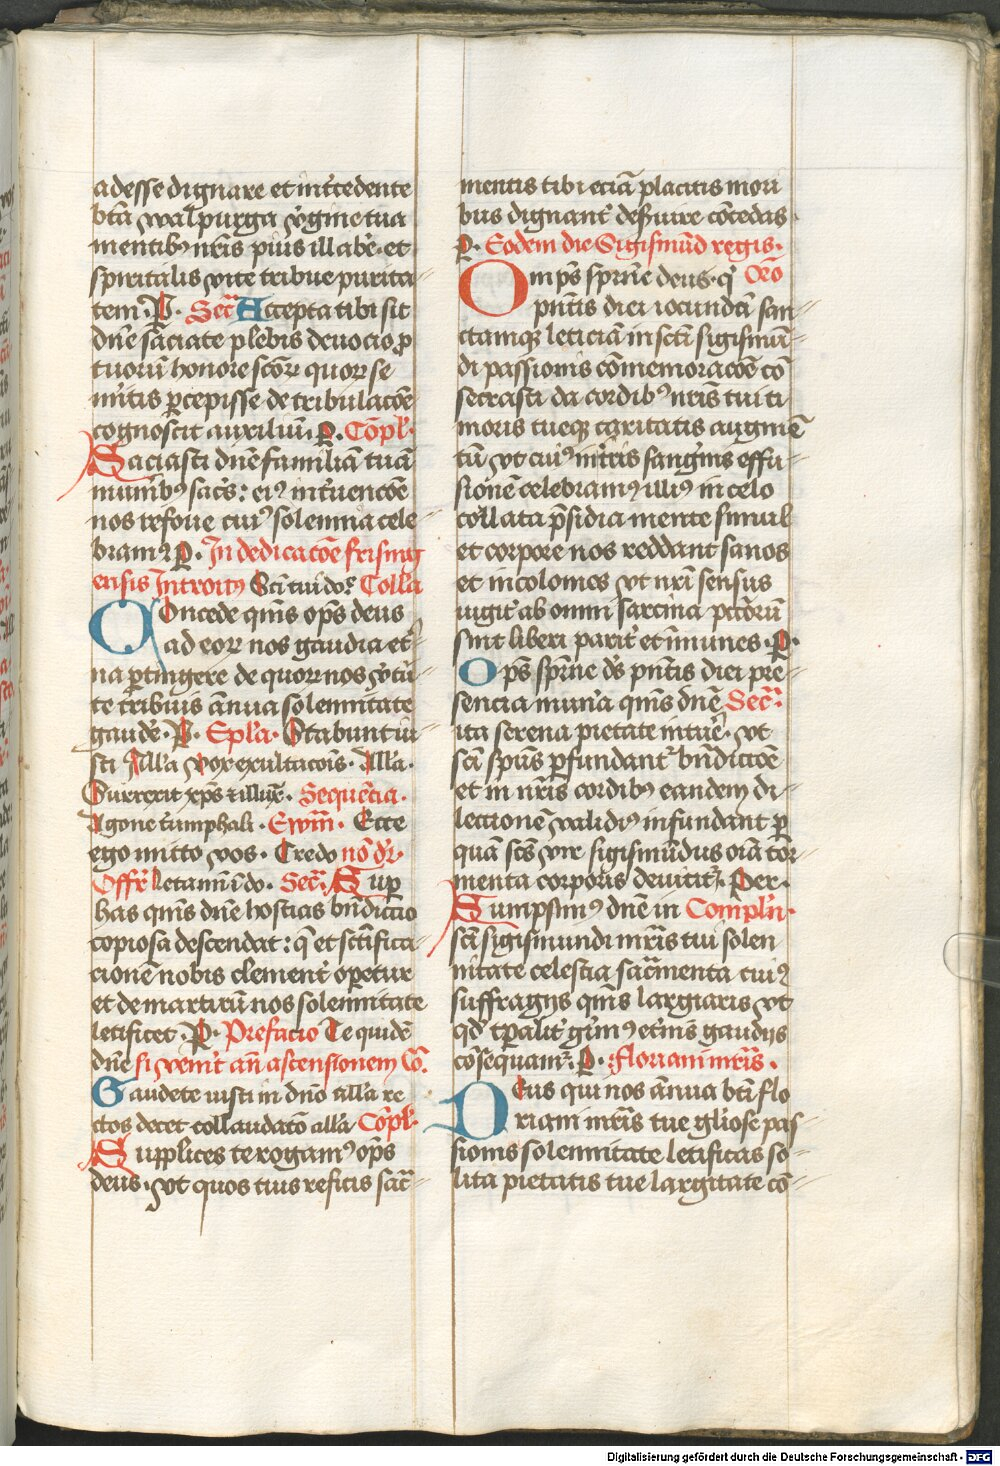 adesse dignare et int̄cedente
btā walpurga v̄gine tua
mentibꝫ nr̄is pius illabe· et
spiritalis vite tribue purita
tem· P· Secr̄ Accepta tibi sit
dn̄e sac̄iate plebis deuocio p̱
tuoruꝫ honore scōꝝ quoꝝ se
m̄itis ꝑcepisse de tribulacōe
cognoscit auxiliū· P· Cōpl'·
Saciasti dn̄e familiā tuā
munibꝫ sac̄s: eiꝰ int̄uencōe
nos refoue cuiꝰ solemnia cele
bramꝰ P· In dedicacōe frising
ensis Introitꝰ Sc̄i tui do· Colla
Concede qm̄s op̄s deus
ad eoꝝ nos gaudia et̄
na ꝑtingere de quoꝝ nos v̄tu
te tribuis ānua solemnitate
gaudē· P· Ep̄la· Stabunt iu
sti All'a Vox exultacōis· All'a·
Surrexit xp̄s ⁊ illuxͭ· Sequēcia·
Agone t̄umphali· Ewm̄· Ecce
ego mitto vos· Credo nō dr̄·
Offr̄ Letamī ī do· Secr̄· Suꝑ
has qm̄s dn̄e hostias bn̄dictio
copiosa descendat: q̄ et sc̄ifica
cionē nobis clement̄ opetur
et de martirū nos solemnitate
letificet· P· Prefacio Te quidē
dn̄e si venit an̄ ascensionem Cō·
Gaudete iusti in dn̄o all'a re
ctos decet collaudatō all'a Cōpl'·
Supplices te rogamꝰ op̄s
deus· vt quos tuis reficis sac̄
mentis tibi eciā placitis mori
bus dignant̄ deseruire cōcedas·
P· Eodem die Sigismūd regis·
Omp̄s sp̄rne deus· q' Orō
pn̄tis diei iocundā san
ctamqꝫ leticiā in sc̄ti sigismū
di passionis cōmemoracōe cō
secrasti da cordibꝰ nr̄is tui ti
moris tueqꝫ caritatis augmē
tū vt cuiꝰ mr̄is sang'nis effu
sionē celebramꝰ illiꝰ in celo
collata p̄sidia mente simul
et corpore nos reddant sanos
et incolomes vt nr̄i sensus
uigit̄ ab omni sarcina pctōrū
sint liberi parit̄ et īmunes· P·
Op̄s sp̄rne ds̄ pn̄tis diei pre
sencia mun'a qm̄s dn̄e Secr̄·
ita serena pietate intuē· vt
sc̄i sp̄us ꝑfundant̄ bn̄dictiōe
et in nr̄is cordibꝫ eandem di
lectionē validiꝰ infundant ꝑ
quā sc̄s vir sigismūdus oīa tor
menta corporis deuicit· Per·
Sumpsimꝰ dn̄e in Compl'n·
sc̄i sigismundi mr̄is tui solen
nitate celestia sac̄menta cuiꝰ
suffragijs qm̄s largiaris vt
qd̄ tꝑalit̄ g'imꝰ et̄nis gaudijs
cōsequamꝰ· P· floriani mr̄is·
Deus qui nos ānua bt̄i flo
riani mr̄is tue gl̄iose pas
sionis solemnitate letificas so
lita pietatis tue largitate cō
Digitalisierung gefördert durch die Deutsche Forschungsgemeinschaft - DFG